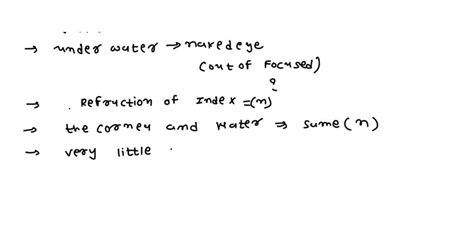 → under water → naked eye
(out of Focused)
?
→ . Refruction of Index = (n)
→ the corney and water ⇒ same (n)
→ very little .